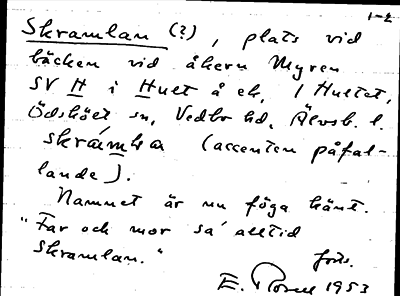 1-2
Skramlan (?), plats vid
bäcken vid åkern Myren
SV H i Hult å ek, 1 Hultet,
Ödskölt sn, Vedbo hd, Älvsb. l.
skrámḷa (accenten påfal-
lande).
Namnet är nu föga känt.
"Far och mor sa' alltid
Skramlan."
forts.
E. 1953